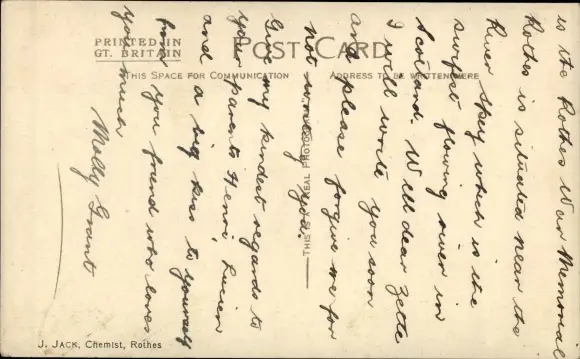 is the Rothes War Memorial
Rothes is situated near the
River Spey which is the
swifest flowing river in
Scotland. Well dear Zette
I will write you soon
and please forgive me for
not
you.
Give my kindest regards to
your parents Henri, Lucien
and a big kiss to yourself
from you friend who loves
you much
Molly Grant
PRINTED IN
GT. BRITAIN
POST CARD
THIS SPACE FOR COMMUNICATION
ADDRESS TO BE WRITTEN HERE
THIS IS A REAL PHOTOGRAPH
J. JACK, Chemist, Rothes